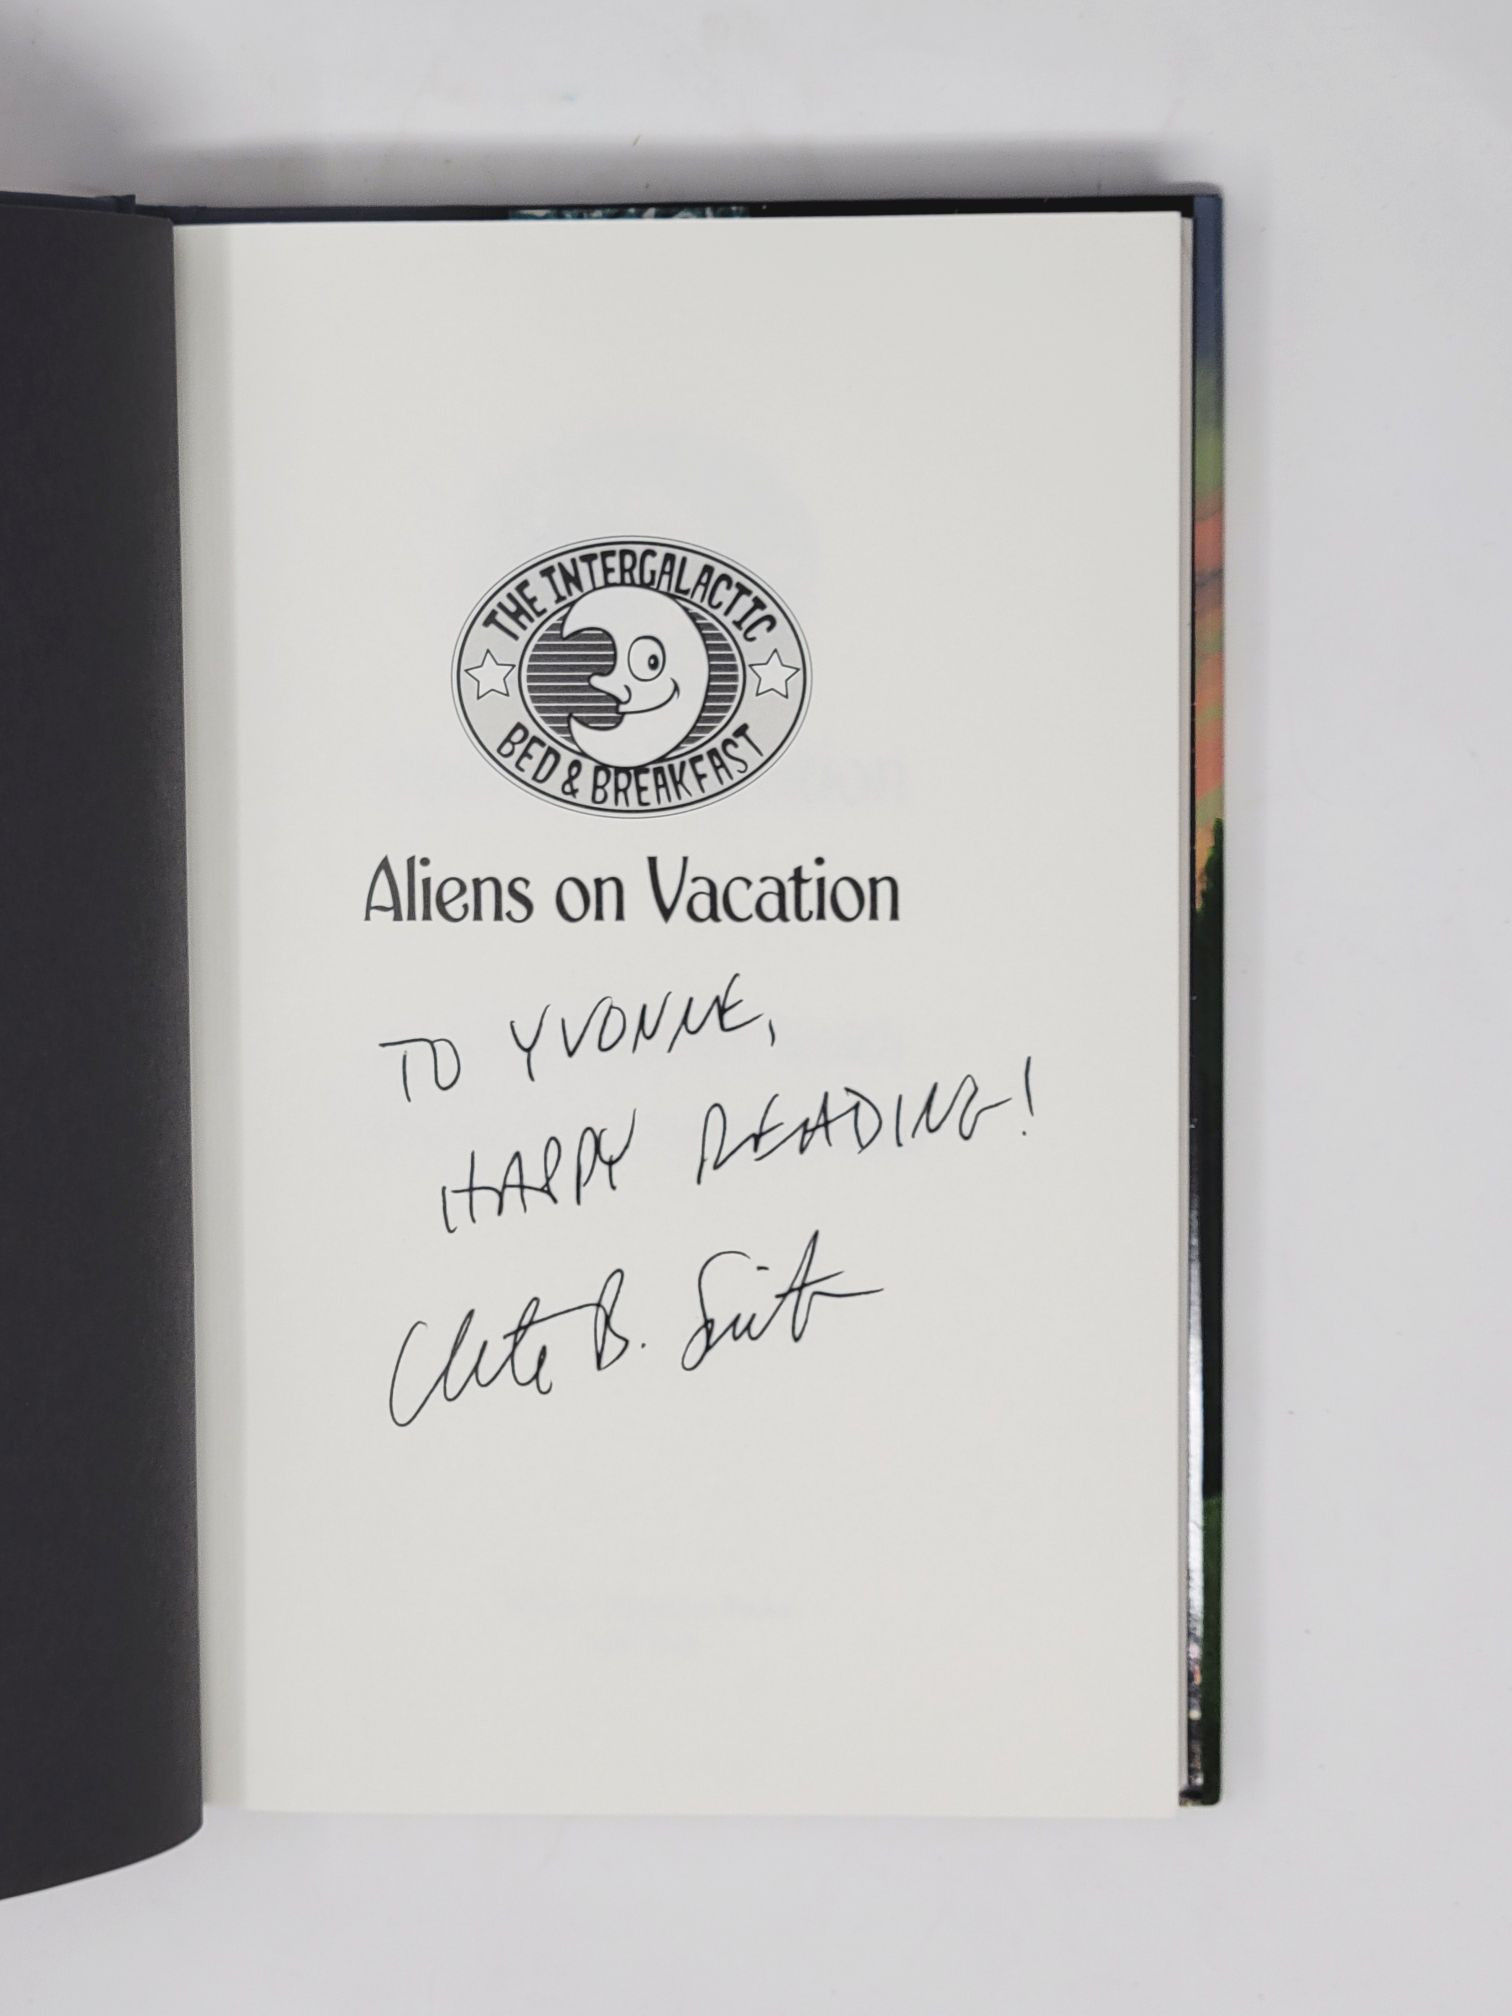 THE INTERGALACTIC
BED & BREAKFAST
Aliens on Vacation
TO YVONNE,
HAPPY READING!
Clete B. Smith